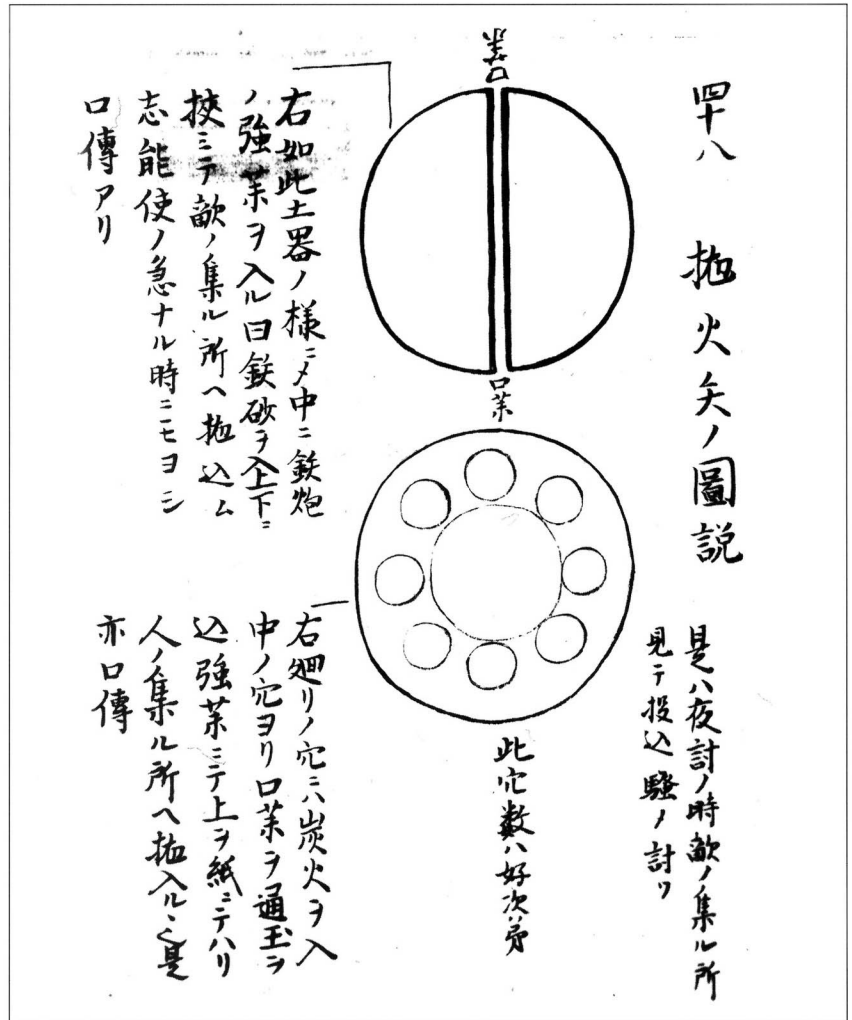 四十八　抛火矢ノ圖説
是ハ夜討ノ時敵ノ集ル所
見テ投込騒ヲ討ツ
口茱
口茱
右如此土器ノ様ニメ中ニ鉄炮
ノ強茱ヲ入ル曰鉄砂ヲ入上下ニ
挾ミテ敵ノ集ル所ヘ抛込ム
志能使ノ急ナル時ニモヨシ
口傳アリ
此穴数ハ好次第
右廻リノ穴ニハ炭火ヲ入
中ノ穴ヨリ口茱ヲ通玉ヲ
込強茱ニテ上ヲ紙ニテハリ
人ノ集ル所ヘ抛入ル之是
亦口傳